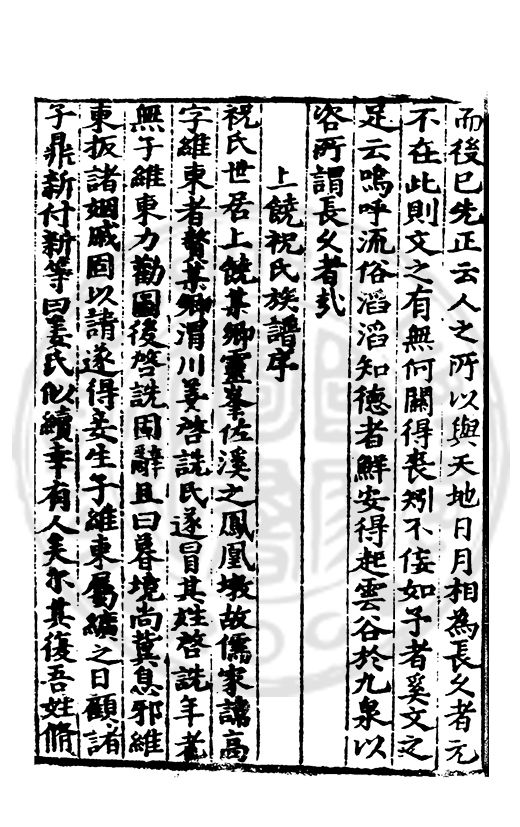 而後已先正云人之所以與天地日月相為長久者元
不在此則文之有無何關得喪矧不佞如予者奚文之
足云嗚呼流俗滔滔知德者鮮安得起雲谷於九泉以
咨所謂長久者哉
上饒祝氏族譜序
祝氏世居上饒某鄉靈峯佐溪之鳳凰墩故儒家諱高
字維東者贅某鄉渭川姜啓詵氏遂冒其姓啓詵年老
無子維東力勸圖後啓詵固辭且曰暮境尚冀息邪維
東扳諸姻戚固以請遂得妾生子維東屬纊之日顧諸
子鼎新付新等曰姜氏似續幸有人矣尓其復吾姓脩